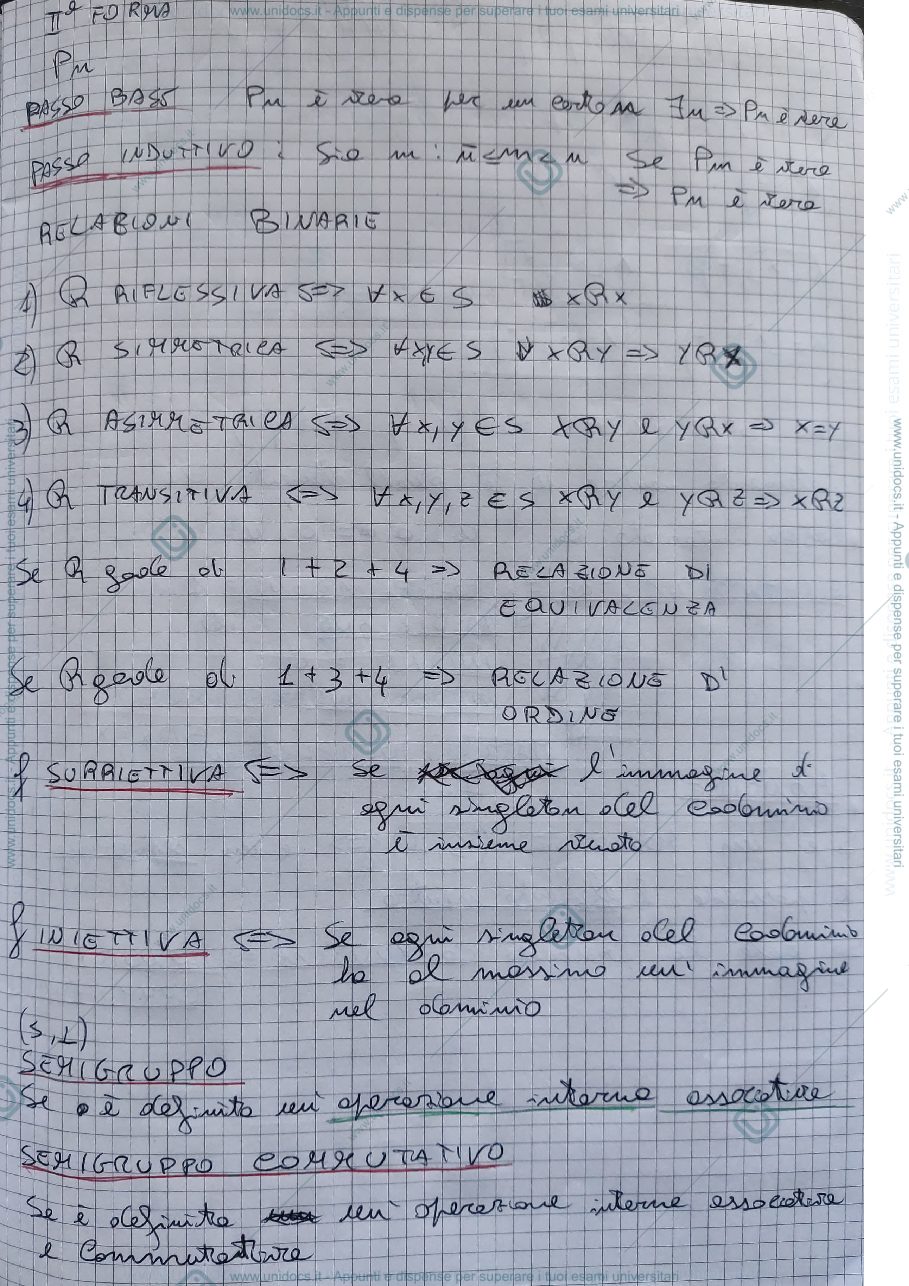 www.unidocs.it - Appunti e dispense per superare i tuoi esami universitari
IIª FORMA
Pn
PASSO BASE Pn è vera per un certo n ∃n => Pn è vera
PASSO INDUTTIVO : Sia m : n̄ ≤ m < n Se Pm è vera
=> Pn è vera
RELAZIONI BINARIE
1) R RIFLESSIVA <=> ∀x ∈ S xRx
2) R SIMMETRICA <=> ∀x,y ∈ S ∀ xRy => yRx
3) R ASIMMETRICA <=> ∀x, y ∈ S xRy e yRx => x=y
4) R TRANSITIVA <=> ∀x, y, z ∈ S xRy e yRz => xRz
Se R gode di 1 + 2 + 4 => RELAZIONE DI
EQUIVALENZA
Se R gode di 1 + 3 + 4 => RELAZIONE DI
ORDINE
f SURRIETTIVA <=> Se l'immagine di
ogni singleton del codominio
è insieme vuoto
f INIETTIVA <=> Se ogni singleton del codominio
ha al massimo un'immagine
nel dominio
(S,⊥)
SEMIGRUPPO
Se è definita un'operazione interna associative
SEMIGRUPPO COMMUTATIVO
Se è definita un'operazione interna associative
e commutative
www.unidocs.it - Appunti e dispense per superare i tuoi esami universitari
www.unidocs.it - Appunti e dispense per superare i tuoi esami universitari
www.unidocs.it - Appunti e dispense per superare i tuoi esami universitari